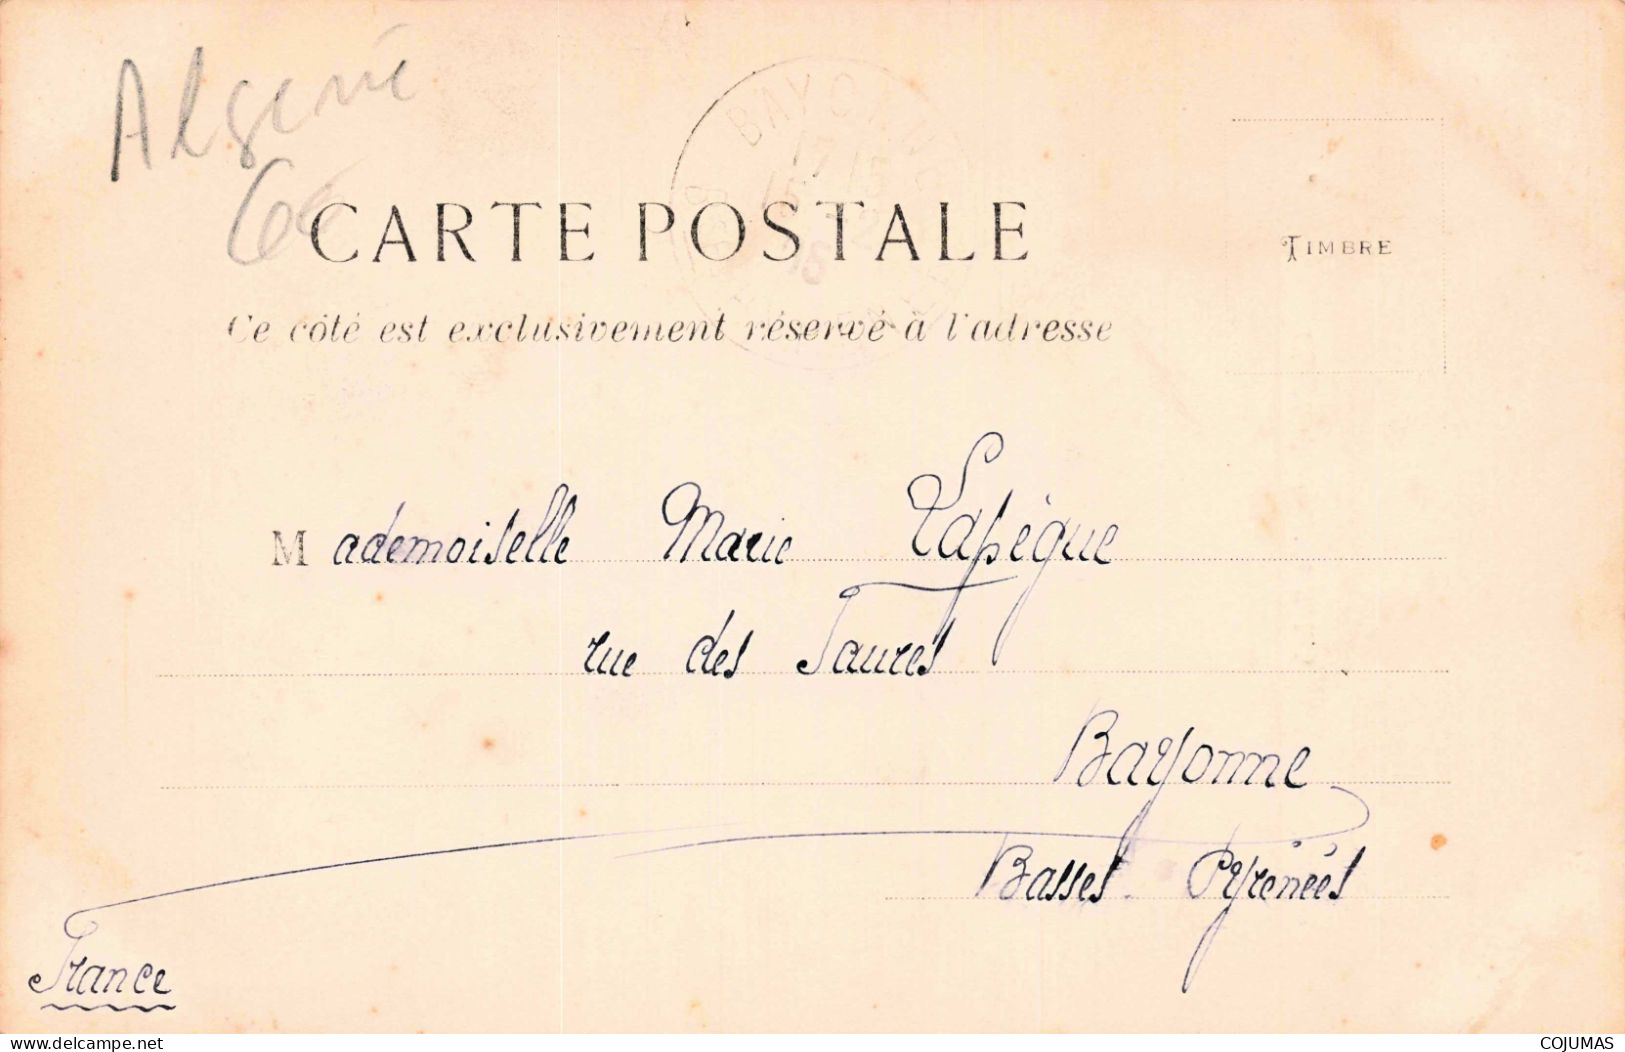 Algerie
6€
BAYONNE
CARTE POSTALE
TIMBRE
Ce côté est exclusivement réservé à l'adresse
Mademoiselle Marie Lapègue
rue des Faures
Bayonne
Basses-Pyrénées
France
www.delcampe.net
COJUMAS